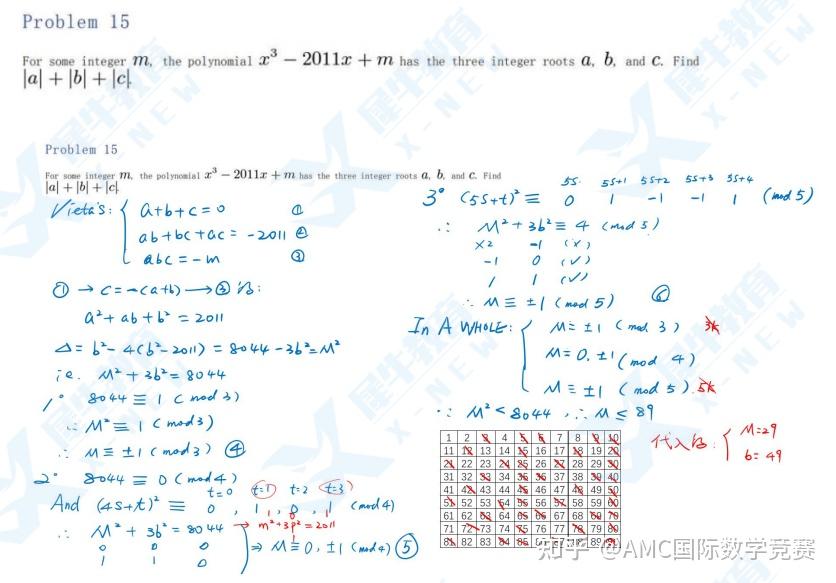 Problem 15
For some integer m, the polynomial x³ − 2011x + m has the three integer roots a, b, and c. Find
|a| + |b| + |c|.
Problem 15
For some integer m, the polynomial x³ − 2011x + m has the three integer roots a, b, and c. Find
|a| + |b| + |c|.
Vieta's: { a+b+c=0 ①
ab+bc+ac = -2011 ②
abc = -m ③
① → c=-(a+b) → ② 得:
a²+ab+b² = 2011
Δ= b²-4(b²-2011) = 8044-3b²=M²
i.e. M²+3b²=8044
1° 8044 ≡ 1 (mod 3)
∴ M² ≡ 1 (mod 3)
∴ M ≡ ±1 (mod 3) ④
2° 8044 ≡ 0 (mod 4)
t=0 t=1 t=2 t=3
And (4S+t)² ≡ 0, 1, 0, 1 (mod 4)
∴ M²+3b² = 8044 → m²+3p²=2011
0 0 0
1 1 0
⇒ M ≡ 0, ±1 (mod 4) ⑤
5S 5S+1 5S+2 5S+3 5S+4
3° (5S+t)² ≡ 0 1 -1 -1 1 (mod 5)
∴ M²+3b² ≡ 4 (mod 5)
x2 -1 (x)
-1 0 (✓)
1 1 (✓)
∴ M ≡ ±1 (mod 5) ⑥
In A WHOLE: { M ≡ ±1 (mod 3) 3k
M ≡ 0, ±1 (mod 4)
M ≡ ±1 (mod 5) 5k
∵ M² < 8044, ∴ M ≤ 89
1 2 3 4 5 6 7 8 9 10
11 12 13 14 15 16 17 18 19 20
21 22 23 24 25 26 27 28 29 30
31 32 33 34 35 36 37 38 39 40
41 42 43 44 45 46 47 48 49 50
51 52 53 54 55 56 57 58 59 60
61 62 63 64 65 66 67 68 69 70
71 72 73 74 75 76 77 78 79 80
81 82 83 84 85 86 87 88 89
代入得: { M=29
b=49
知乎 @AMC国际数学竞赛
犀牛教育
X-NEW